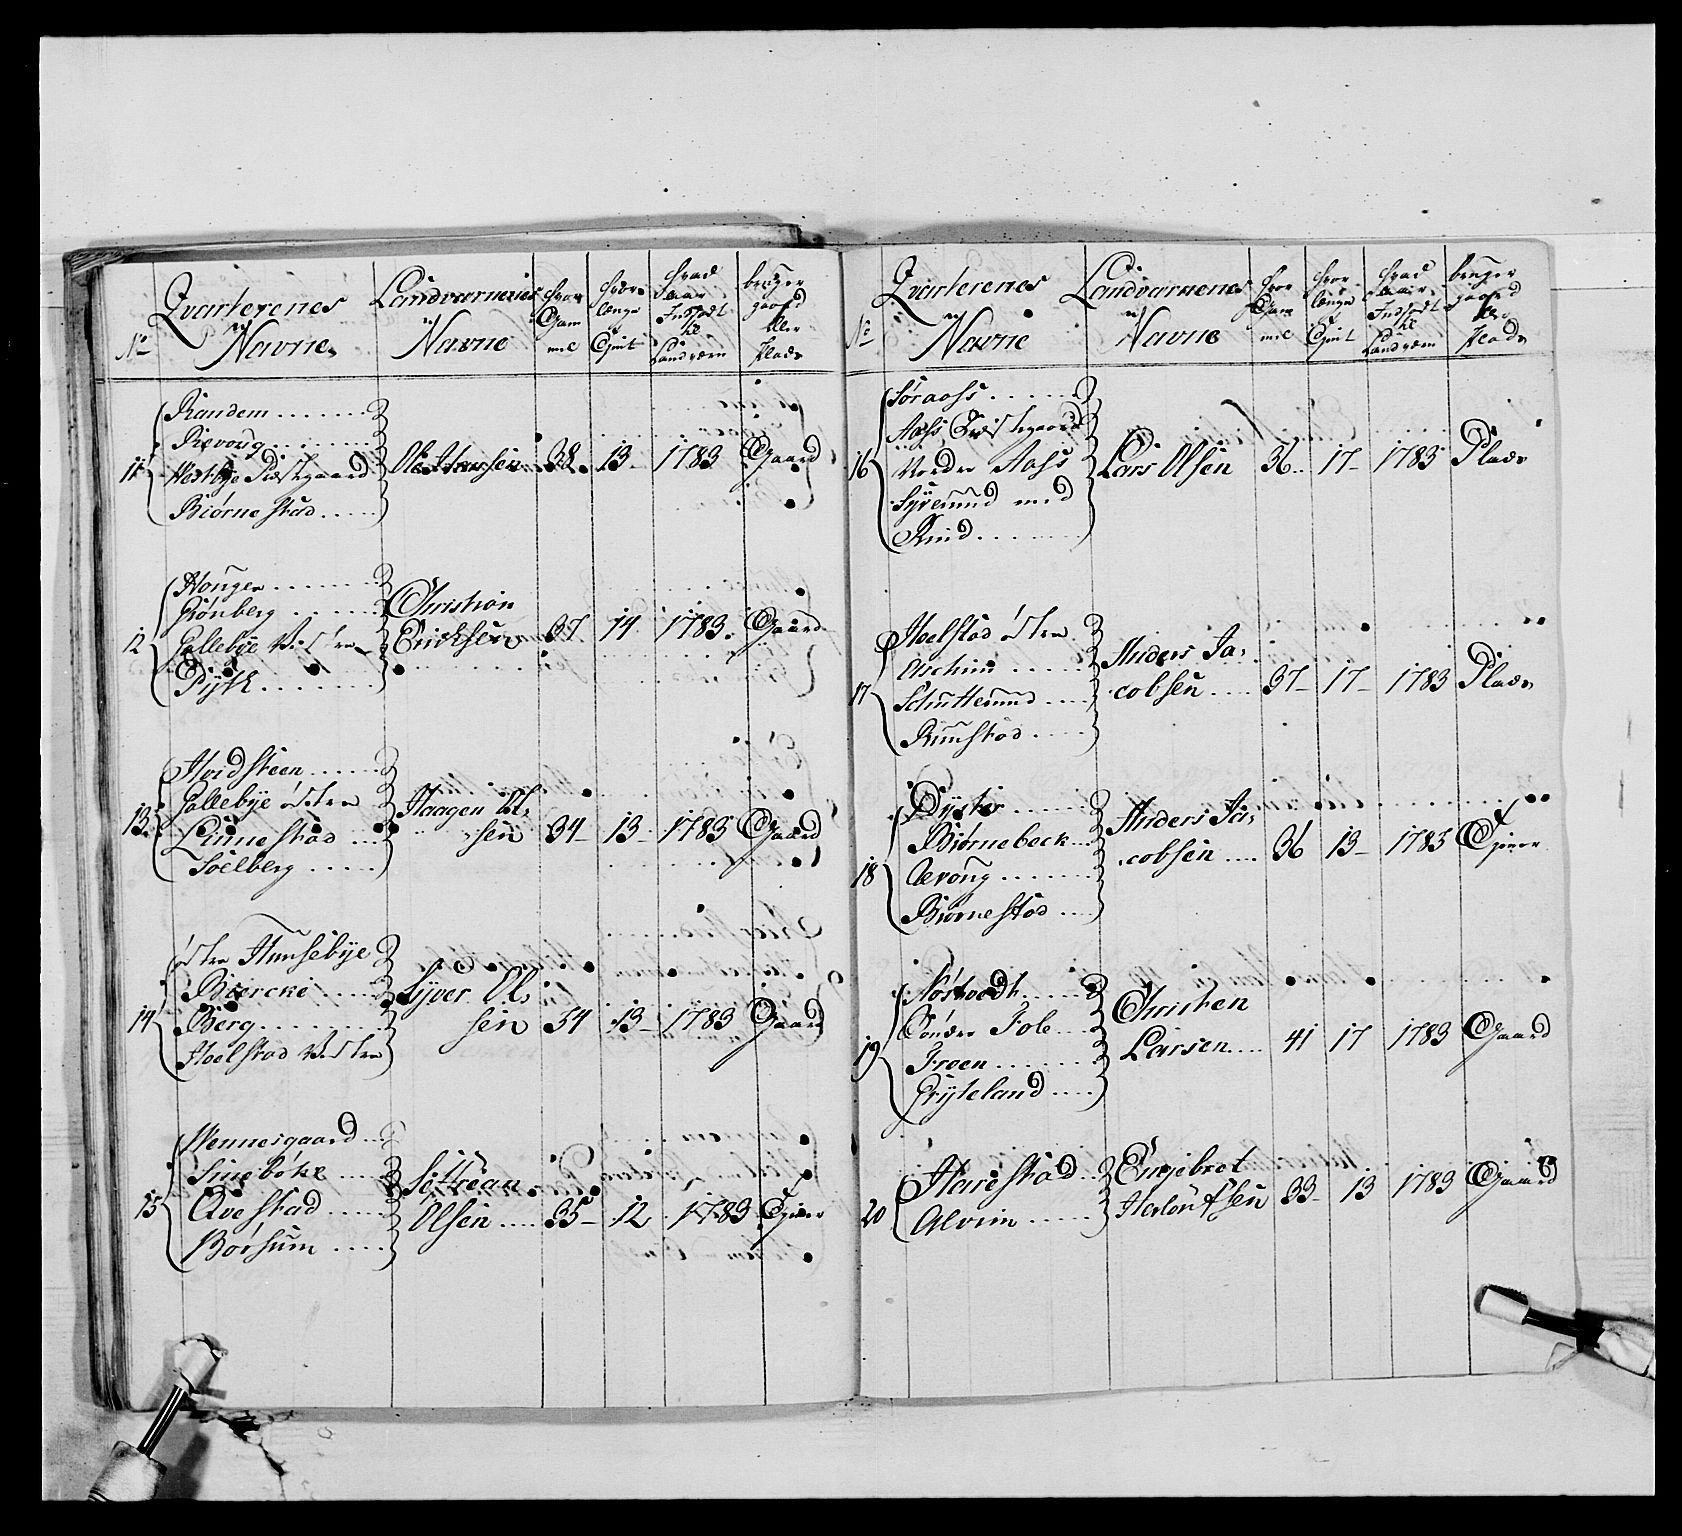 No
Qvarterenes Navne
Landværnenes Navne
hvor Gam mel
hvor længe tient
hvad Aar Indsadt til Landværn
bruger gaard eller Plads
11
Randem
Revoug
Westbye Præstgaard
Biørnestad
Ole Hansen 38 13 1783 Gaard
12
Houger
Rønberg
Gallebye Vestre
Pytt
Christian
Ericksen 37 14 1783 Gaard
13
Hvidsteen
Gallebye østre
Linnestad
Soelberg
Haagen Ol-
sen 34 13 1783 Gaard
14
østre Hunsebye
Biercke
Berg
Hoelstad Vestre
Syver Ol-
sen 34 13 1783 Gaard
15
Wennesgaard
Sineboke
Qvestad
Børsum
Olsen 35 12 1783
No
Qvarterenes Navne
Landværnenes Navne
hvor Gam mel
hvor længe tient
hvad Aar Indsadt til Landværn
bruger gaard eller Plads
16
Søraass
Aass Præstegaard
Nordre Aass
Syverund med
Rud
Lars Olsen 36 17 1783 Plads
17
Hoelstad østre
Aschim
Schutterund
Rumstad
Anders Ja-
cobsen 37 17 1783 Plads
18
Dyster
Biørnebeck
Ærong
Biørnestad
Anders Ja-
cobsen 36 13 1783
19
Nøstvedt
Sønder Fole
Froen
Gryteland
Christen
Larsen 41 17 1783 Gaard
20
Harestad
Alvim
Engebret
33 13 1783 Gaard